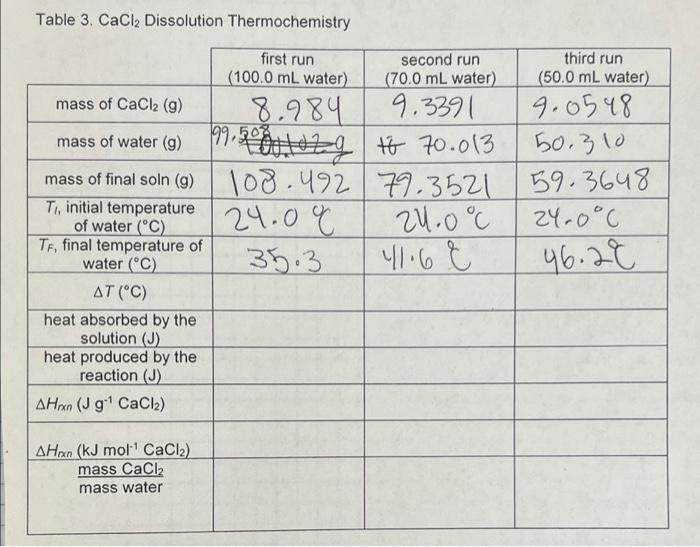 Table 3. CaCl₂ Dissolution Thermochemistry
first run
(100.0 mL water)
second run
(70.0 mL water)
third run
(50.0 mL water)
mass of CaCl₂ (g)
8.984
9.3391
9.0548
mass of water (g)
99.508
70.013
50.310
mass of final soln (g)
108.492
79.3521
59.3648
T_I, initial temperature
of water (°C)
24.0 °C
24.0 °C
24.0 °C
T_F, final temperature of
water (°C)
35.3
41.6 °C
46.2 °C
ΔT (°C)
heat absorbed by the
solution (J)
heat produced by the
reaction (J)
ΔH_rxn (J g⁻¹ CaCl₂)
ΔH_rxn (kJ mol⁻¹ CaCl₂)
mass CaCl₂
mass water